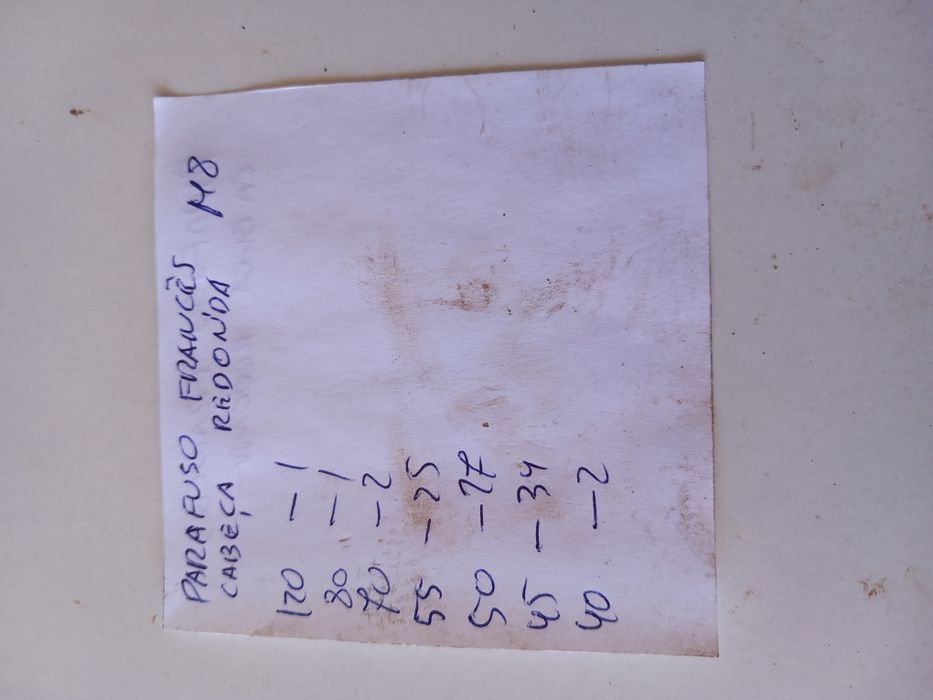 PARAFUSO FRANCÊS
CABEÇA REDONDA M8
120 - 1
80 - 1
70 - 2
55 - 25
50 - 27
45 - 34
40 - 2